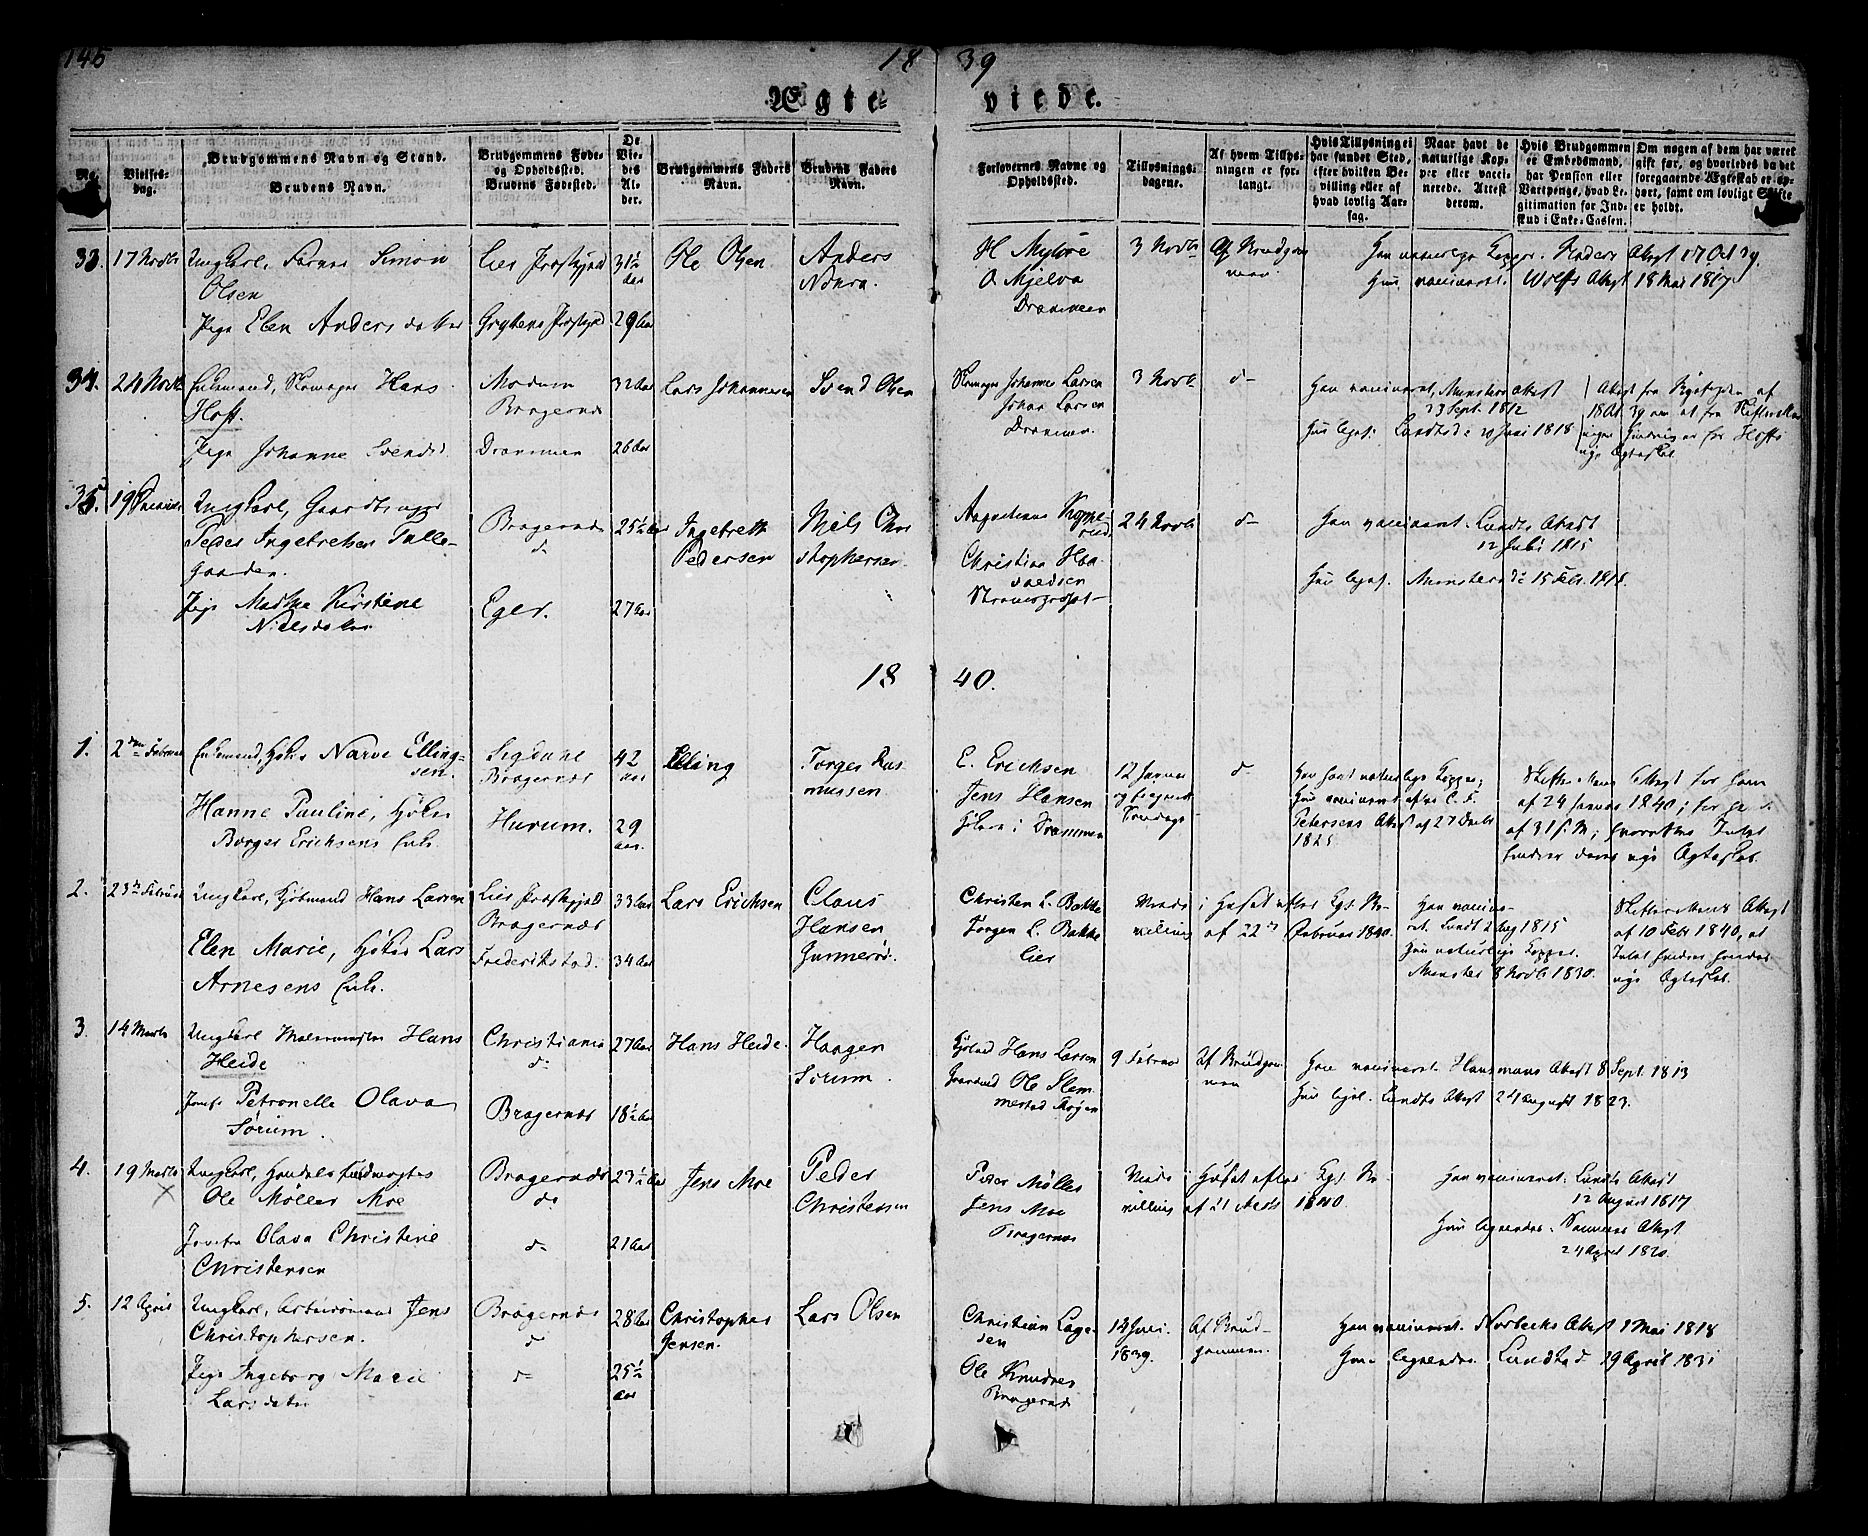 145
18 39
Ægte- viede.
No.
Vielses-
dag.
Brudgommens Navn og Stand.
Brudens Navn.
Brudgommens Føde-
og Opholdssted.
Brudens Fødested.
De
Vie-
des
Al-
der.
Brudgommens Faders
Navn.
Brudens Faders
Navn.
Forlovernes Navne og
Opholdssted.
Tillysnings-
dagene.
Af hvem Tillys-
ningen er for-
langt.
Hvis Tillysning ei
har fundet Sted,
efter hvilken Be-
villing eller af
hvad lovlig Aar-
sag.
Naar havt de
naturlige Kop-
per eller vacci-
nerede. Attest
derom.
Hvis Brudgommen
er Embedsmand,
har Pension eller
Vartpenge, hvad Le-
gitimation for Ind-
skud i Enke-Cassen.
Om nogen af dem har været
gift før, og hvorledes da det
forrgaaende Ægteskab er op-
hørt, samt om lovligt Skifte
er holdt.
33. 17 Novbr Ungkarl, Simon
Olsen
Pige Elen Andersdatter
Lier Præstegjeld
Grytens Præstegjeld
31½ Aar
29 Aar
Ole Olsen
Anders
H Myhre
O Mjelva
Drammen
3 Novbr
Af Brudgom
men
Han naturlige Kopper. Attest 17 Oct 39.
Hun vaccineret. Wolffs Attest 18 Mai 1817
34. 24 Novbr Enkemand, Skomager Hans
Hoff.
Pige Johanne Svendsd.
Modum
Bragernæs
Drammen
32 Aar
26 Aar
Lars Johannesen
Svend Olsen
Skomager Johannes Larsen
Johan Larsen
Drammen.
3 Novbr
do
Han vaccineret, Munsters Attest
23 Sept. 1812
Hun liges. Lundts do 20 Juni 1818
Attest fra Byfogden af
18 Oct. 39 om at fra Skifteretten
intet hindrer for Hoffs
nye Ægteskab.
35. 19 Decembr Ungkarl, Gaardbruger
Peder Ingebretsen Tolle-
gaarden.
Pige Marthe Kirstine
Nielsdatter
Bragernæs
do
Eger.
25½ Aar
27 Aar
Ingebrett
Pedersen
Niels Chri
stophersen.
Koppe-
rud
Christian Haa-
valdsen
Strømsgodset
24 Novbr
do
Han vaccineret. Lundts Attest
12 Juli 1815
Hun liges. Munsters do 15 Febr. 1816.
18 40.
1. 2den Februar Enkemand, Høker Narve Elling-
sen.
Hanne Pauline, Høker
Børger Erichsens Enke.
Sigdahl
Bragernæs
Hurum.
42
Aar
29
Aar.
Elling
Torger Ras-
mussen
E. Erichsen
Jens Hansen
Høkere i Drammen
12 Januar
og følgende
Søndage
do
Han havt naturlige Kopper;
Hun vaccineret efter C. F.
Petersens Attest af 27 Decbr
1825
Skifterettens Attest for ham
af 24 Januar 1840; for hende
af 31 s. M; hvorefter Intet
hindrer deres nye Ægteskab.
2. 23de Februar Ungkarl, Kjøbmand Hans Larsen
Elen Marie, Høker Lars
Arnesens Enke.
Lier Præstegjeld
Bragernæs
Frederikstad.
33 Aar
34 Aar
Lars Erichsen
Claus
Hansen
Gunnerød.
Christen L. Bakke
Jørgen L. Bakke
Lier
Viede i Huset efter Kgl. Be-
villing af 22de Februar 1840.
Han vaccine-
ret. Lundt 2 Aug 1815
Hun naturlige Kopper.
Munster 8 Novbr 1830.
Skifterettens Attest
af 10 Febr 1840, at
Intet hindrer hendes
nye Ægteskab.
3. 14 Marts Ungkarl Malermester Hans
Heide
Jomfr Petronelle Olava
Sørum.
Christiania
do
Bragernæs
27 Aar
18½ Aar
Hans Heide.
Haagen
Sørum.
Hans Larsen
Ole Slem-
mestad Skogen
9 Februar
Af Brudgom
men
Han vaccineret. Hansmans Attest 8 Sept. 1813
Hun ligel. Lundts Attest 24 August 1823.
4. 19 Marts Ungkarl, Handelsfuldmægtig
Ole Møller Moe
Jomfru Olava Christine
Christensen
Bragernæs
do
do
23½ Aar
21 Aar
Jens Moe
Peder
Christensen
Peter Møller
Jens Moe
Bragernæs
Viede i Huset efter Kgl. Be-
villing af 21 Marts 1840.
Han vaccineret. Lundts Attest
12 August 1817
Hun ligeledes. Attest
24 April 1820.
5. 12 April Ungkarl, Arbeidsmand Jens
Christophersen.
Pige Ingeborg Marie
Larsdatter
Bragernæs
do
do
28 Aar
25½
Aar
Christopher
Jensen.
Lars Olsen
Christian Lage-
sen
Ole Knudsen
Bragernæs
14 Juli
1839.
Af Brud-
gommen.
Han vaccineret. Norbecks Attest 1 Mai 1818
Hun ligeledes Lundts do 19 April 1831